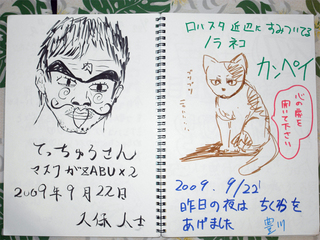 肉
てっちゅうさん
マスクガ×ABU×2
2009年9月22日
ロハスタ近辺にすみついてる
ノラネコ
カンペイ
心の扉を
開いて下さい
2009. 9/22!
昨日の夜は ちくわを
あげました 豊川